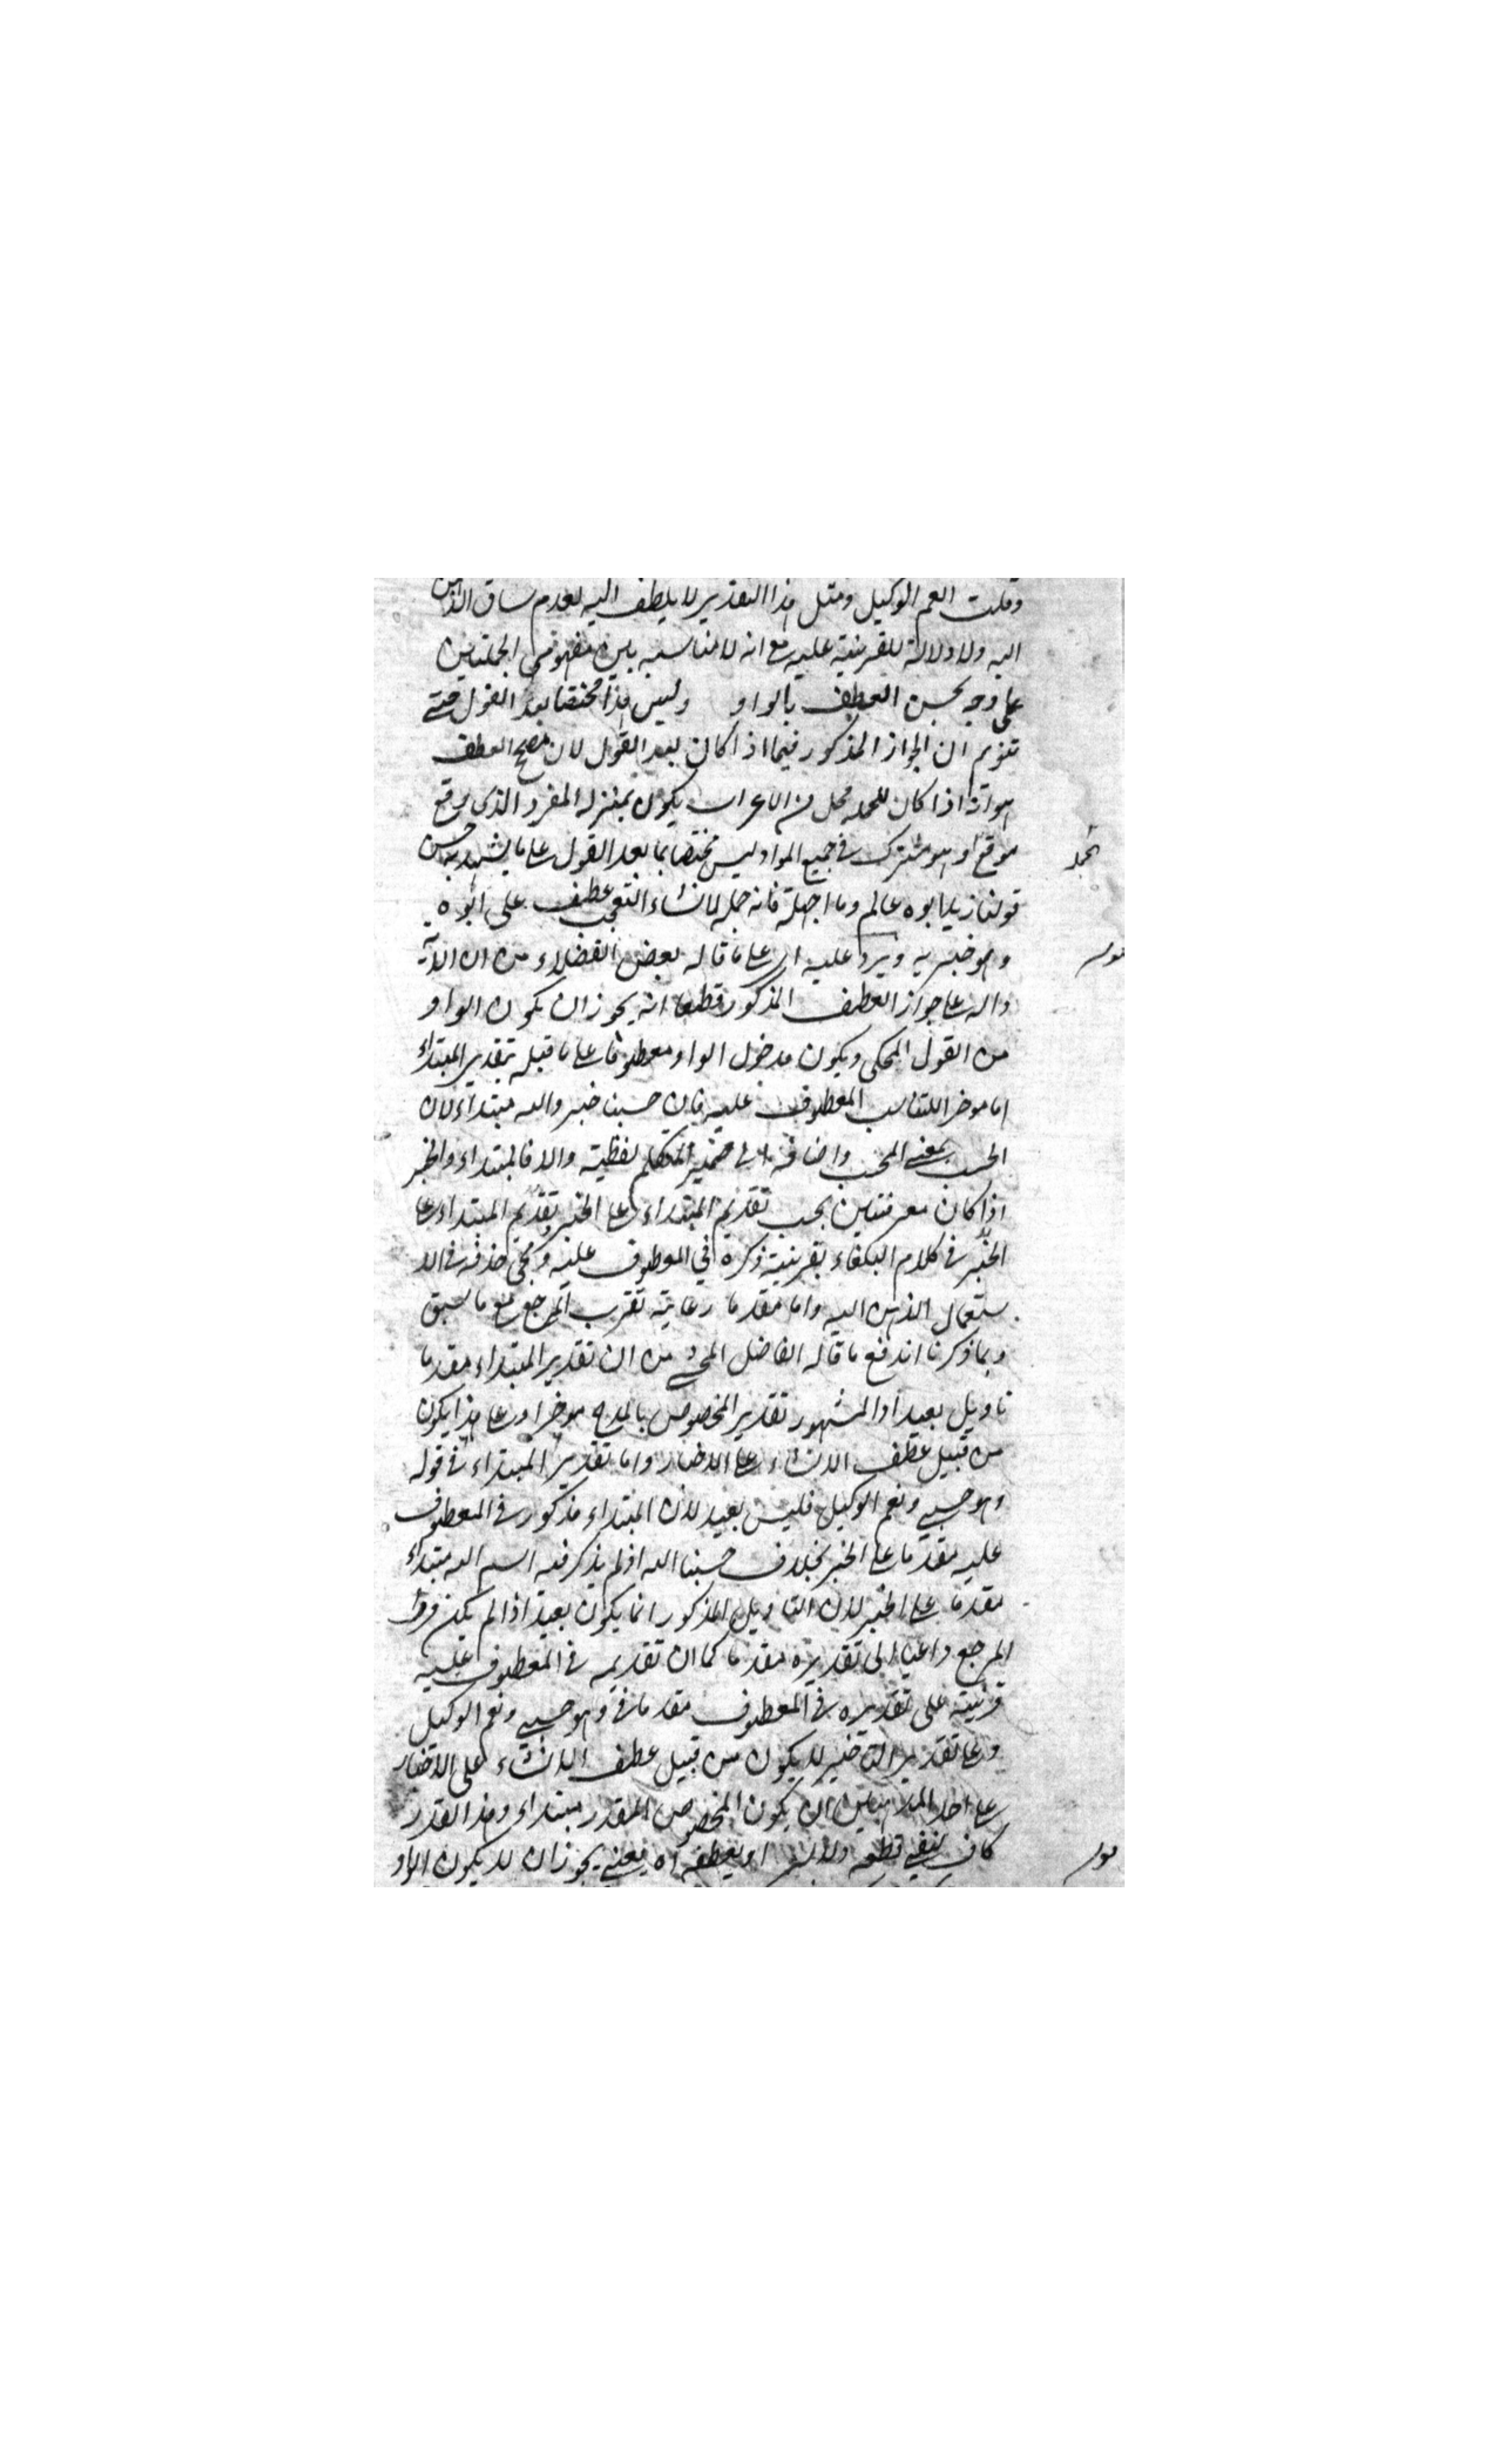 وقلت نعم الوكيل ومثل هذا التقدير لا يلطف اليه لعدم سياق الذهن
اليه ولا دلالة للقرينة عليه مع انه لا مناسبة بين مفهومي الجملتين
على وجه يحسن العطف بالواو وليس هذا مختصا بعد القول حتى
تتوهم ان الجواز المذكور فيما اذا كان بعد القول لان مصحح العطف
هو انه اذا كان للجملة محل من الاعراب يكون بمنزلة المفرد الذي وقع
موقعه وهو مشترك في جميع المواد ليس مختصا بما بعد القول على ما يشهد به حسن
الجملة
قولنا زيد ابوه عالم وما اجهله فانه جملة لانشاء التعجب عطف على ابوه
وهو خبرية ويرد عليه اي على ما قاله بعض الفضلاء من ان الآية
قوله
دالة على جواز العطف المذكور قطعا انه يجوز ان يكون الواو
من القول المحكي ويكون مدخول الواو معطوفا على ما قبله بتقدير المبتداء
اما موخرا للتناسب المعطوف عليه فان حسبنا خبر والله مبتداء لان
الحسب بمعنى المحسب واضافته الى ضمير المتكلم لفظية والا فالمبتداء والخبر
اذا كان معرفتين يجب تقديم المبتداء على الخبر وتقديم المبتداء على
الخبر في كلام البلغاء بقرينة ذكره في المعطوف عليه ومجئ حذفه في الا
ستعمال الذهن اليه واما مقدما رعاية تقرب المرجع مع ما سبق
وبما ذكرنا اندفع ما قاله الفاضل المحشي من ان تقدير المبتداء مقدما
تاويل بعيد اذ المشهور تقدير المخصوص بالمدح موخرا وعلى هذا يكون
من قبيل عطف الانشاء على الاخبار واما تقدير المبتداء في قوله
وهو حسبي ونعم الوكيل فليس بعيد لان المبتداء مذكور في المعطوف
عليه مقدما على الخبر بخلاف حسبنا الله اذ لم يذكر فيه اسم الله مبتداء
مقدما على الخبر لان التاويل المذكور انما يكون بعيدا اذا لم يكن قرب
المرجع داعيا الى تقديره مقدما كما ان تقديمه في المعطوف عليه
قرينة على تقديره في المعطوف مقدما في وهو حسبي ونعم الوكيل
وعلى تقدير التاخير لا يكون من قبيل عطف الانشاء على الاخبار
على احد المذهبين ان يكون المخصوص المقدر مبتداء وهذا القدر
كاف لنفي قطعية ولالته او بعطفه اه يعني يجوز ان لا يكون الواو
قوله